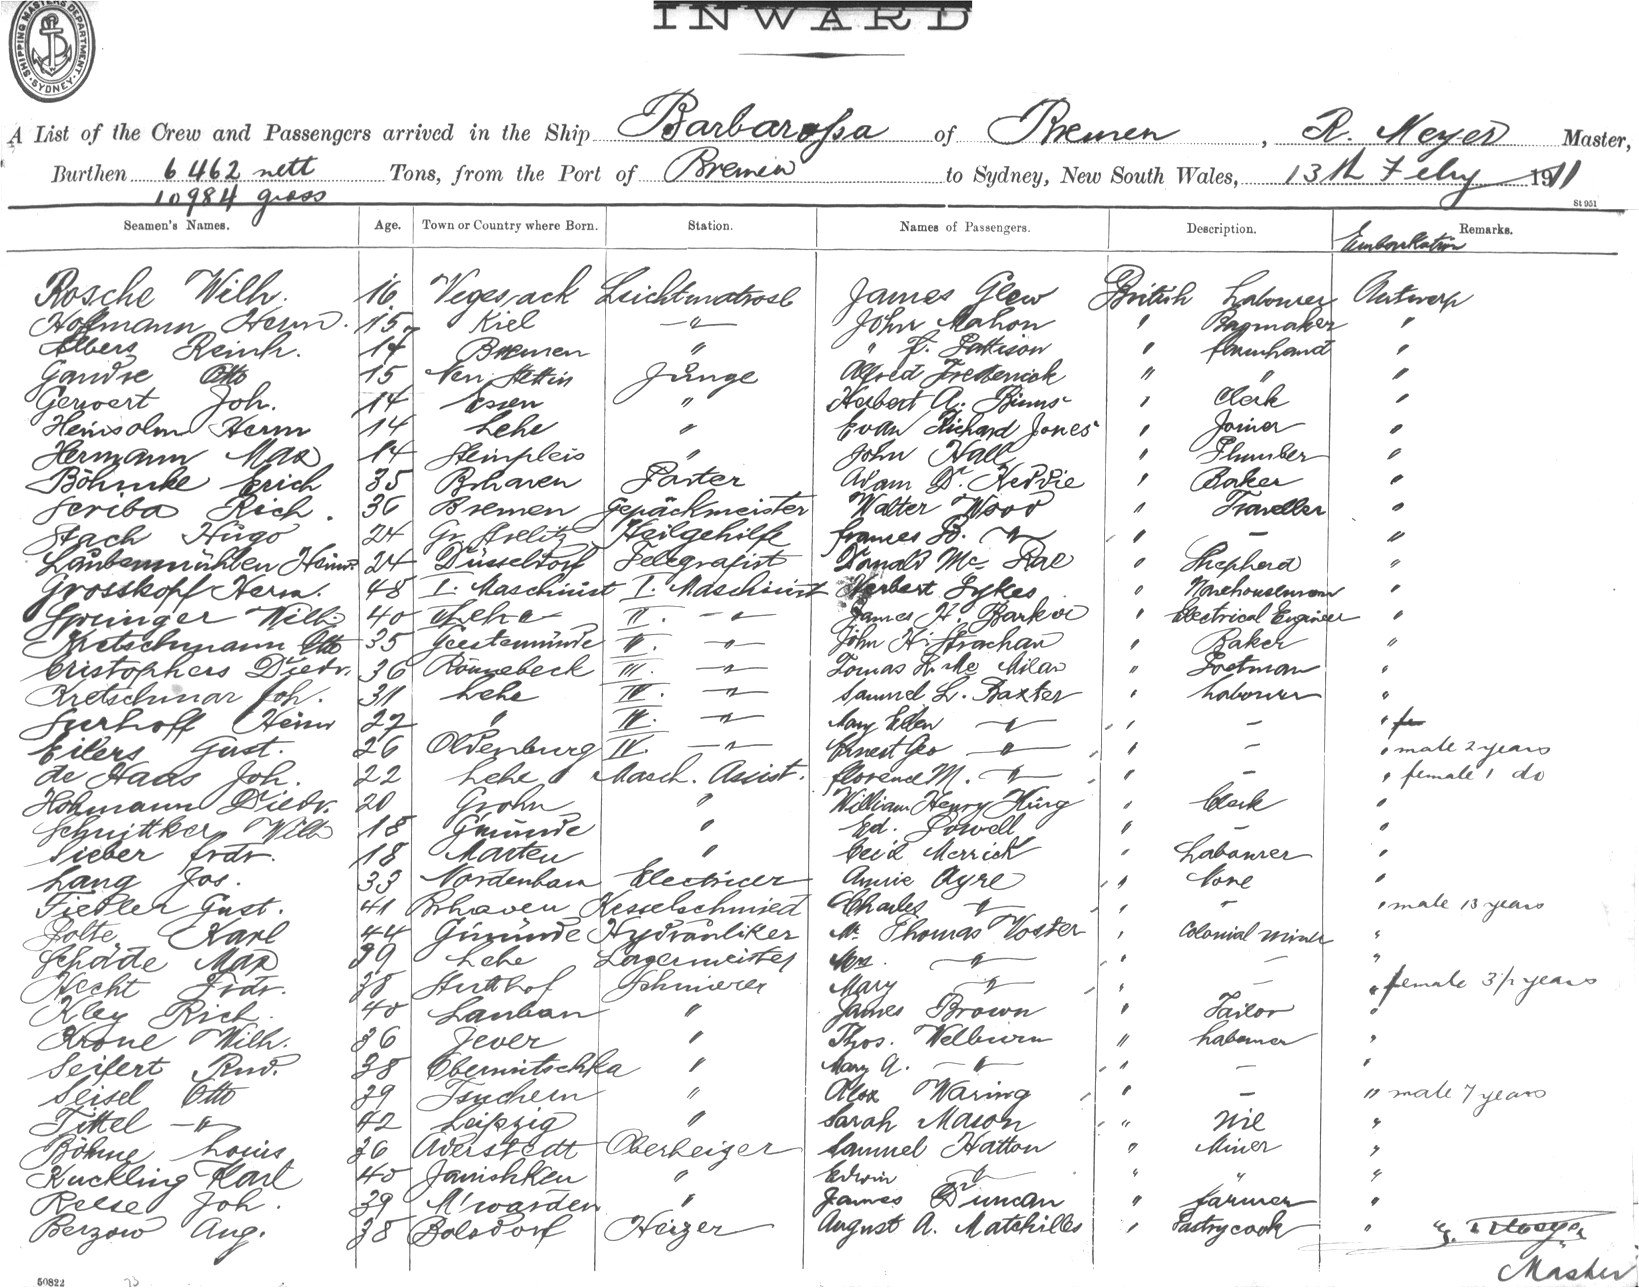 SHIPPING MASTERS DEPARTMENT. SYDNEY
INWARD
A List of the Crew and Passengers arrived in the Ship Barbarossa of Bremen, R. Meyer Master,
Burthen 6462 nett Tons, from the Port of Bremen to Sydney, New South Wales, 13th Feby 1911
10984 gross
St 951
Seamen's Names. Age. Town or Country where Born. Station. Names of Passengers. Description. Embarkation Remarks.
Rosche Wilh. 16 Vegesack Leichtmatrose James Glew British labourer Antwerp
Hoffmann Herm. 15 Kiel —"— John Mahon " Bagmaker "
Albers Reinh. 14 Bremen " " F. Pattison " farmhand "
Gandre Otto 15 Neu Stettin Junge Alfred Frederick " " "
Gerwert Joh. 14 Essen " Herbert A. Binns " Clerk "
Heinsohn Herm 14 Lehe " Evan Richard Jones " Joiner "
Hermann Max 14 " John Hall " Plumber "
Böhmke Erich 35 Brhaven Porter Adam D. " Baker "
Scriba Rich. 36 Bremen Gepäckmeister Walter Wood " Traveller "
Stach Hugo 24 Gr. Strelitz Heilgehilfe Frances B. —"— " — "
Laubenmühlen Heinr. 24 Düsseldorf Telegrafist Donald McRae " Shepherd "
Grosskopf Herm. 48 I. Maschinist I. Maschinist Herbert Sykes " Warehouseman "
Springer Wilh. 40 Lehe II. —"— James H. Barker " Electrical Engineer "
Kretschmann Otto 35 Geestemünde II. —"— John H. Strachan " Baker "
Cristophers Diedr. 36 Rönnebeck III. —"— Tomas R. Mc Milan " "
Kretschmar Joh. 31 Lehe IV. —"— Samuel L. Baxter " labourer "
Surhoff Heinr 27 " IV. —"— Mary Ellen —"— " — "
Eilers Gust. 26 Oldenburg IV. —"— Ernest Geo —"— " — " male 2 years
de Haas Joh. 22 Lehe Masch. Assist. Florence M. —"— " — " female 1 do
Hohmann Diedr. 20 Grohn " William Henry King " Clerk "
Schnittker Wilh 18 Gmünde " Ed. Powell " — "
Sieber Frdr. 18 Marten " Cecil Merrick " Labourer "
Lang Jos. 33 Nordenham Electricer Annie Ayre " None "
Fiedler Gust. 41 Brhaven Kesselschmied Charles —"— " " " male 13 years
Nolte Karl 44 Gmünde Hydrauliker Mr Thomas Voster " Colonial Miner "
Schade Max 39 Lehe Lagermeister Mrs. —"— " — "
Hecht Frdr. 38 Stutthof Schmierer Mary —"— " — " female 3½ years
Kley Rich. 40 Lauban " James Brown " Tailor "
Krone Wilh. 36 Jever " Thos. Welburn " labourer "
Seifert Rud. 38 " Mary A. —"— " — "
Seisel Otto 39 Tuchern " Alex Waring " — " male 7 years
Tittel —"— 42 Leipzig " Sarah Mason " Nil "
Böhme Louis 36 Aderstedt Oberheizer Samuel Hatton " Miner "
Kuckling Karl 40 Janishken " Edwin —"— " " "
Reese Joh. 39 M'warden " James Duncan " farmer "
Berzow Aug. 38 Bolsdorf Heizer August A. Matchilles " Pastrycook "
Master
50822